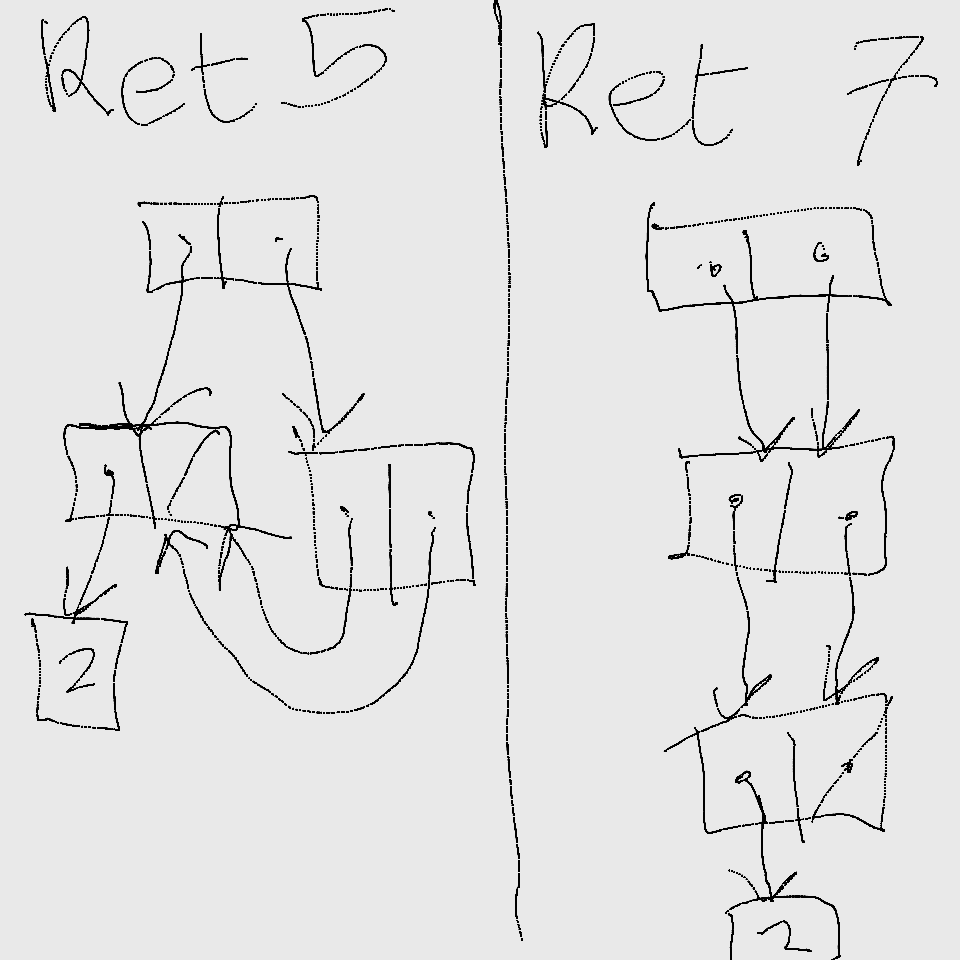 Ret 5
2
Ret 7
2